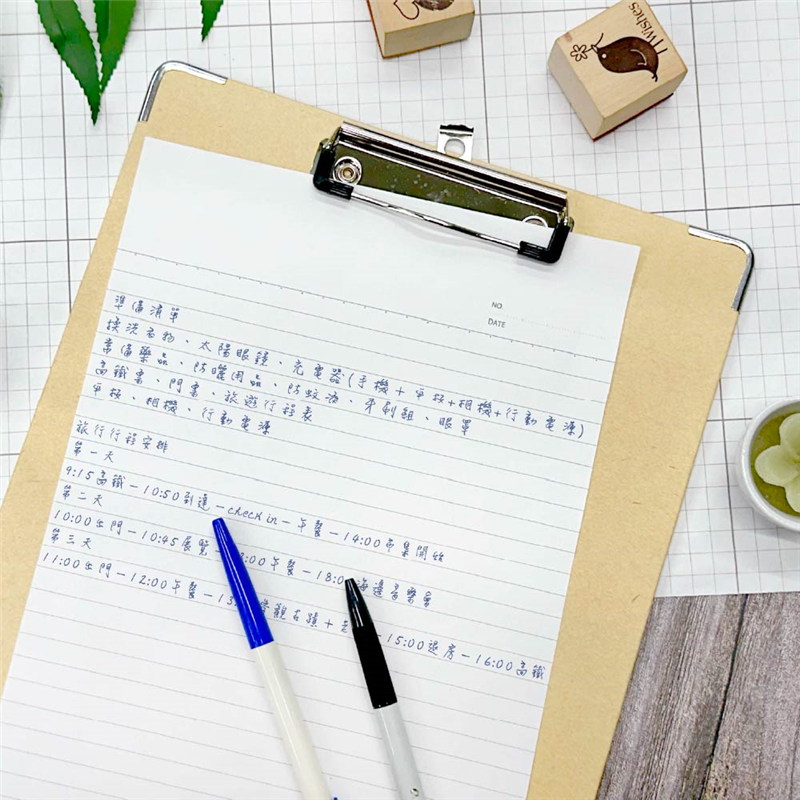 Wishes
NO.
DATE
準備清單
換洗衣物、太陽眼鏡、充電器(手機+平板+相機+行動電源)
常備藥品、防曬用品、防蚊液、牙刷組、眼罩
高鐵票、門票、旅遊行程表
平板、相機、行動電源
旅行行程安排
第一天
9:15高鐵-10:50到達-check in-午餐-14:00市集開始
第二天
10:00出門-10:45展覽- :00午餐-18:0 海邊音樂會
第三天
11:00出門-12:00午餐-13 參觀古蹟+ -15:00退房-16:00高鐵